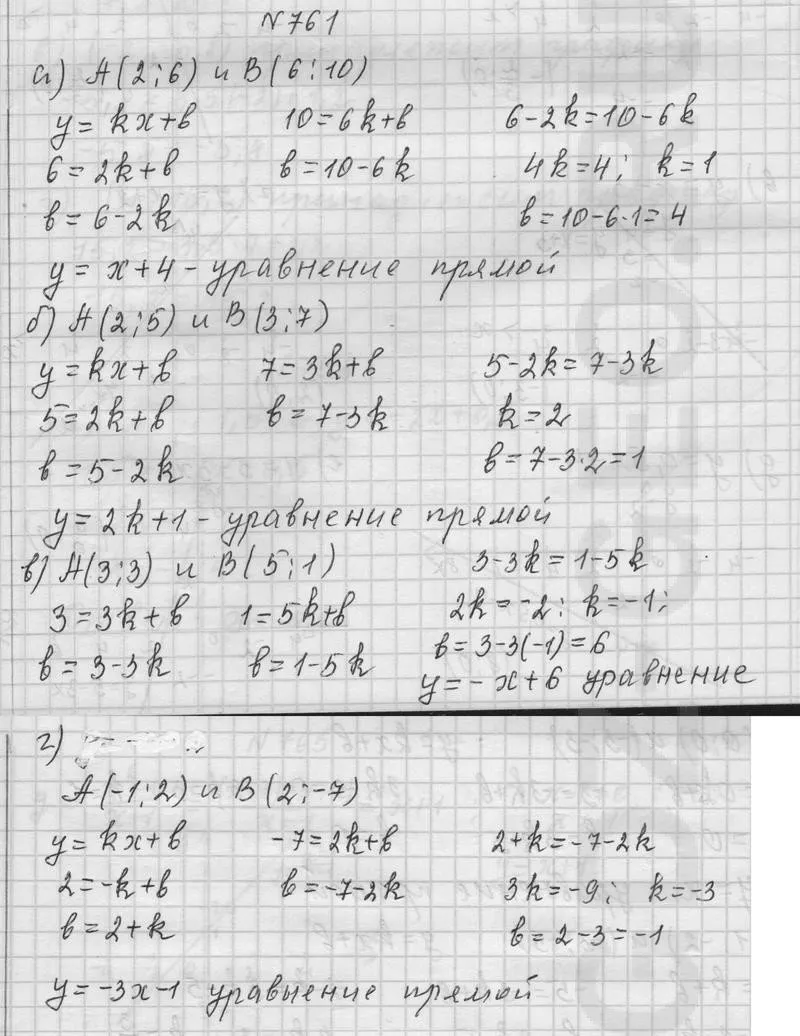 №761
а) A(2;6) и B(6;10)
y = kx+b 10=6k+b 6-2k=10-6k
6=2k+b b=10-6k 4k=4; k=1
b=6-2k b=10-6·1=4
y = x+4 - уравнение прямой
б) A(2;5) и B(3;7)
y=kx+b 7=3k+b 5-2k=7-3k
5=2k+b b=7-3k k=2
b=5-2k b=7-3·2=1
y=2k+1 - уравнение прямой
в) A(3;3) и B(5;1) 3-3k=1-5k
3=3k+b 1=5k+b 2k=-2; k=-1;
b=3-3k b=1-5k b=3-3(-1)=6
y=-x+6 уравнение
г)
A(-1;2) и B(2;-7)
y=kx+b -7=2k+b 2+k=-7-2k
2=-k+b b=-7-2k 3k=-9; k=-3
b=2+k b=2-3=-1
y=-3x-1 уравнение прямой